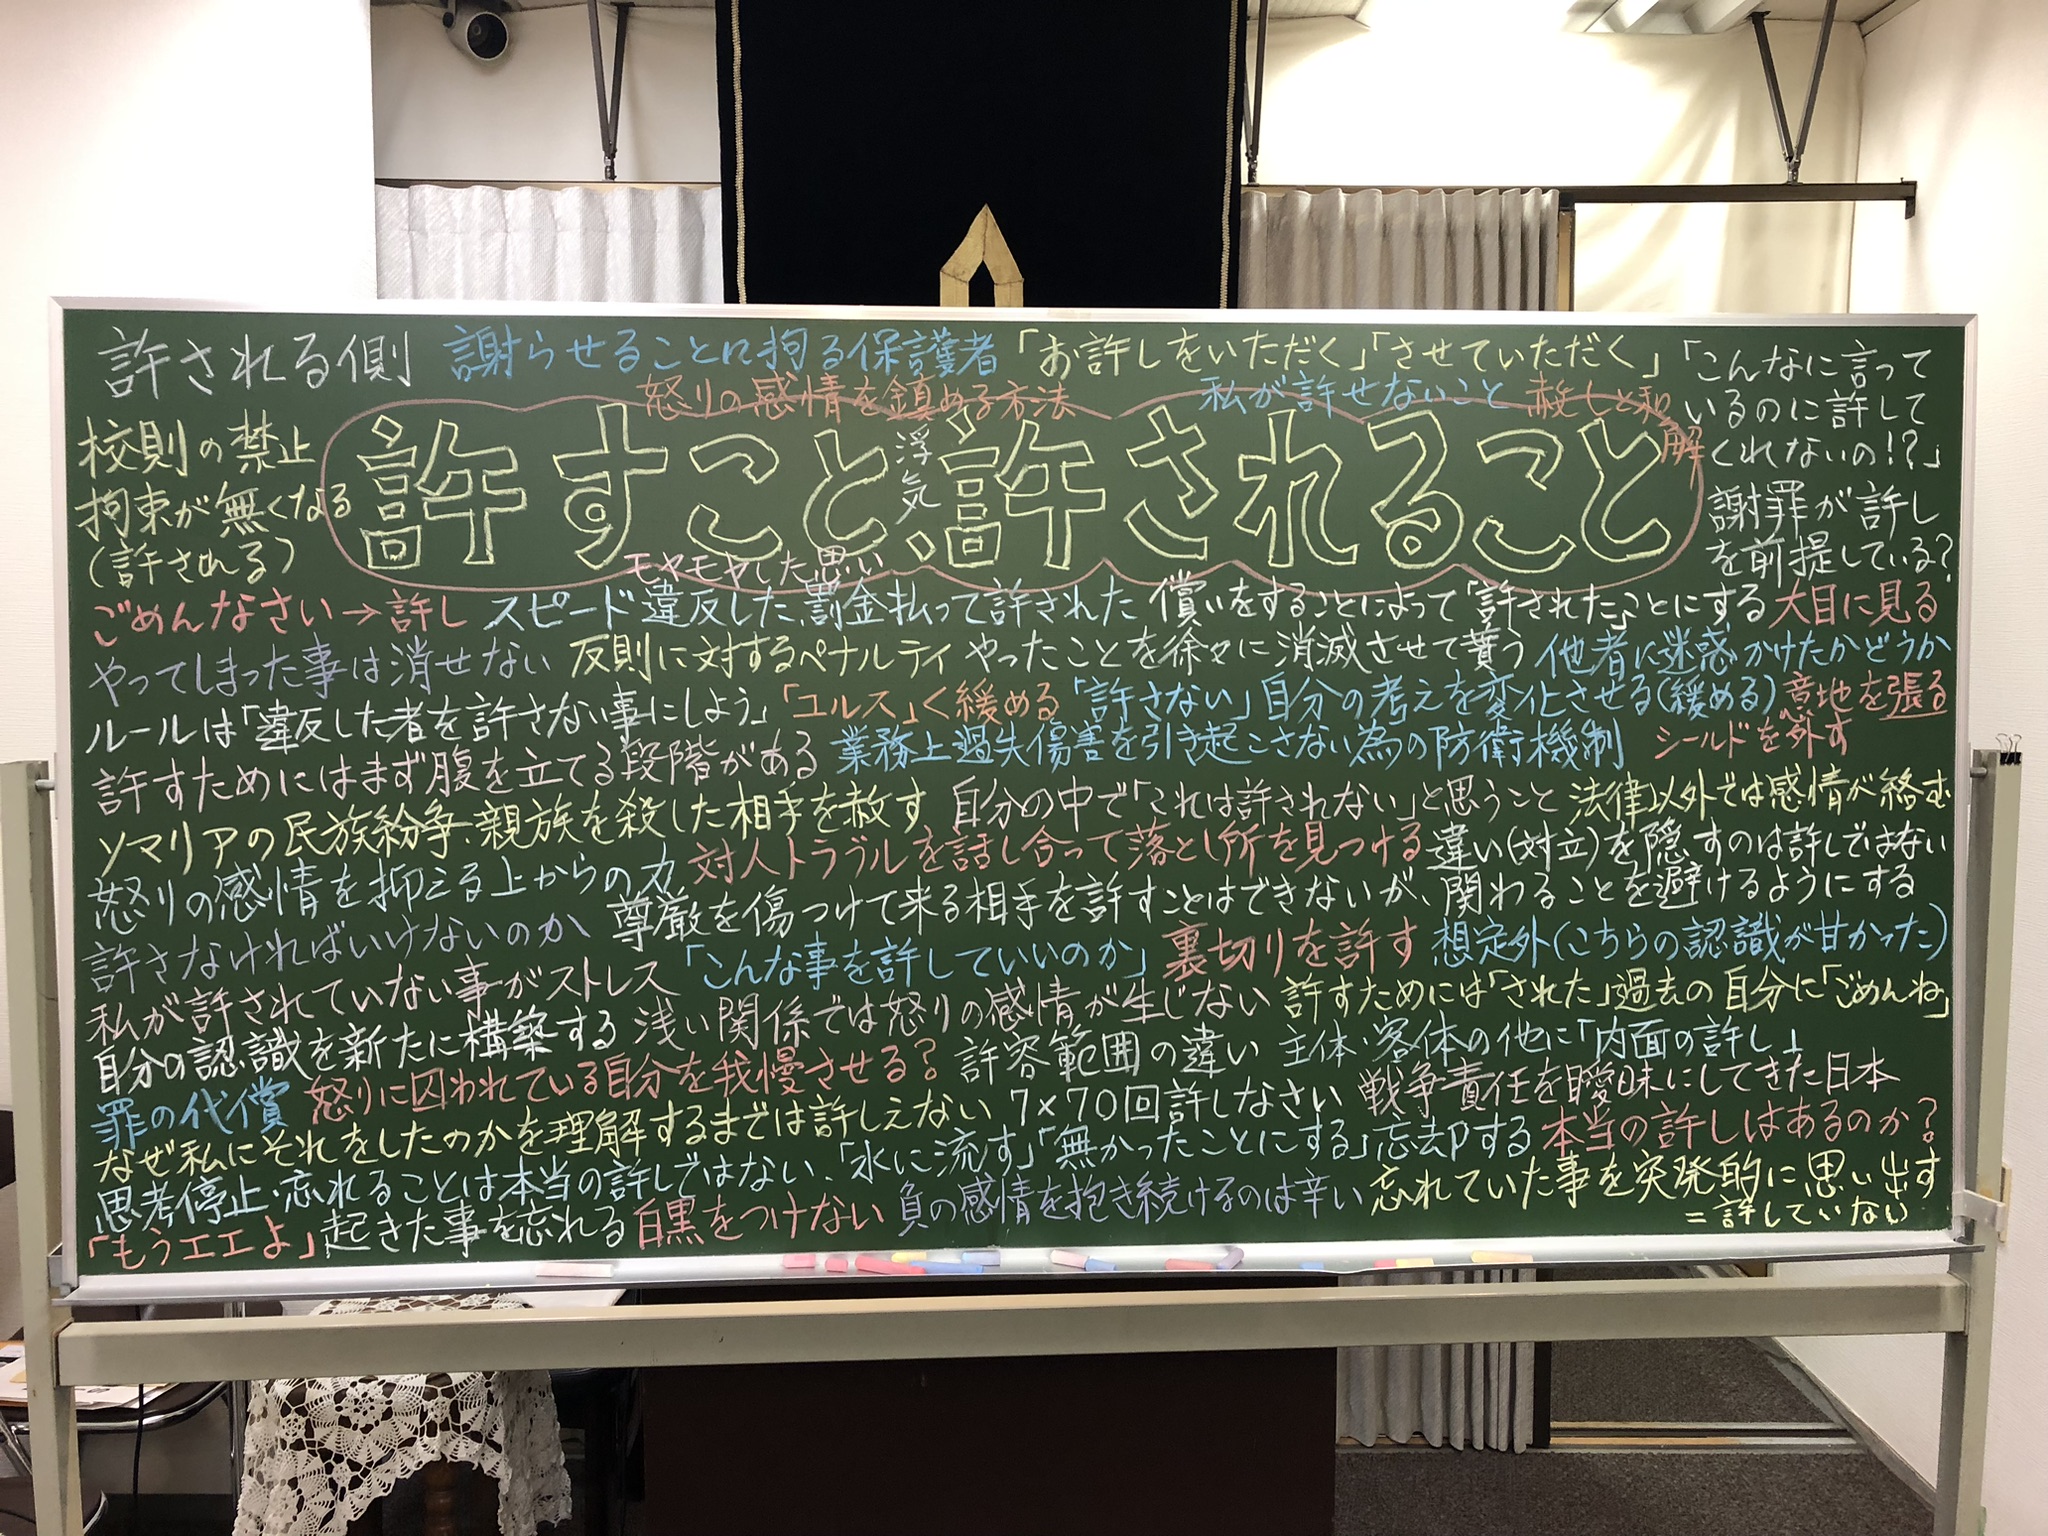 許される側 謝らせることに拘る保護者 「お許しをいただく」「させていただく」 「こんなに言って
いるのに許して
くれないの!?」
怒りの感情を鎮める方法 私が許せないこと 赦しと和
解
校則の禁止
拘束が無くなる
(許される)
許すこと・許されること
浮気
謝罪が許し
を前提している?
モヤモヤした思い
ごめんなさい→許し スピード違反した罰金払って許された 償いをすることによって「許された」ことにする 大目に見る
やってしまった事は消せない 反則に対するペナルティ やったことを徐々に消滅させて貰う 他者に迷惑かけたかどうか
ルールは「違反した者を許さない事にしよう」 「ユルス」く緩める 「許さない」自分の考えを変化させる(緩める) 意地を張る
許すためにはまず腹を立てる段階がある 業務上過失傷害を引き起こさない為の防衛機制 シールドを外す
ソマリアの民族紛争・親族を殺した相手を赦す 自分の中で「これは許されない」と思うこと 法律以外では感情が絡む
怒りの感情を抑える上からの力 対人トラブルを話し合って落とし所を見つける 違い(対立)を隠すのは許しではない
許さなければいけないのか 尊厳を傷つけて来る相手を許すことはできないが、関わることを避けるようにする
私が許されていない事がストレス 「こんな事を許していいのか」 裏切りを許す 想定外(こちらの認識が甘かった)
自分の認識を新たに構築する 浅い関係では怒りの感情が生じない 許すためには「された」過去の自分に「ごめんね」
罪の代償 怒りに囚われている自分を我慢させる? 許容範囲の違い 主体・客体の他に「内面の許し」
なぜ私にそれをしたのかを理解するまでは許しえない 7×70回許しなさい 戦争責任を曖昧にしてきた日本
思考停止・忘れることは本当の許しではない、「水に流す」「無かったことにする」忘却する 本当の許しはあるのか?
「もうエエよ」 起きた事を忘れる 白黒をつけない 負の感情を抱き続けるのは辛い 忘れていた事を突発的に思い出す
=許していない